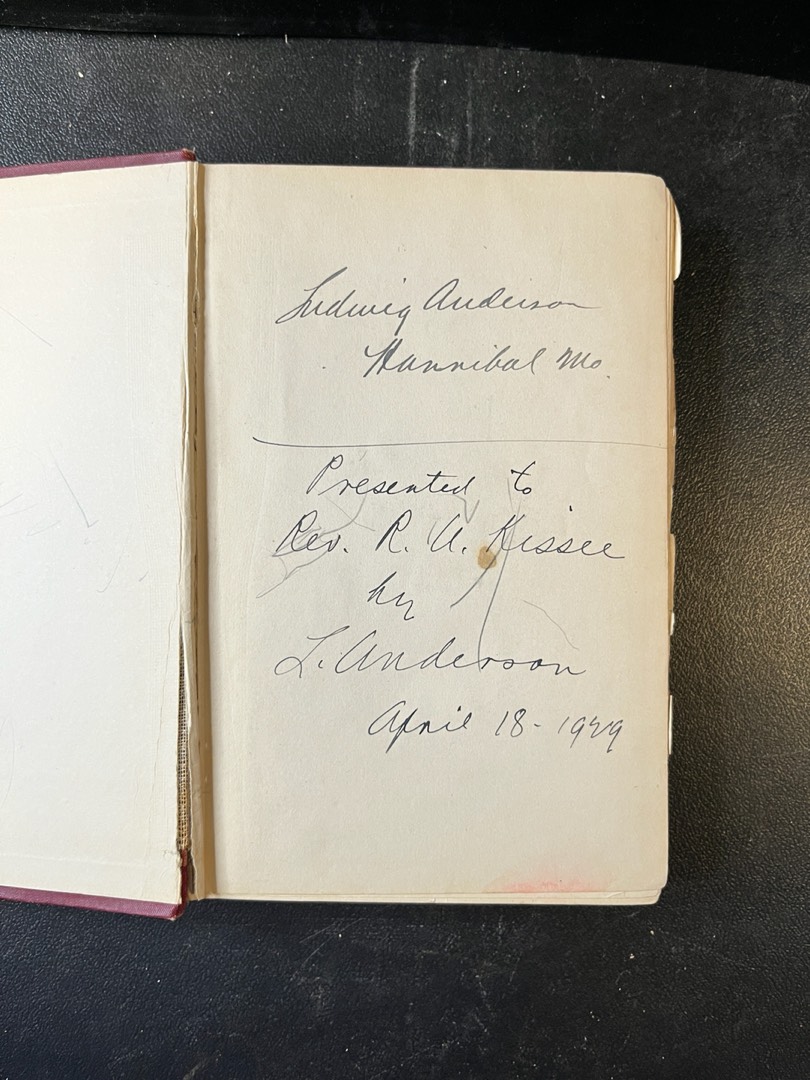 Ludwig Anderson
Hannibal Mo.
Presented to
Rev. R. A. Kissee
by
L. Anderson
April 18 - 1949